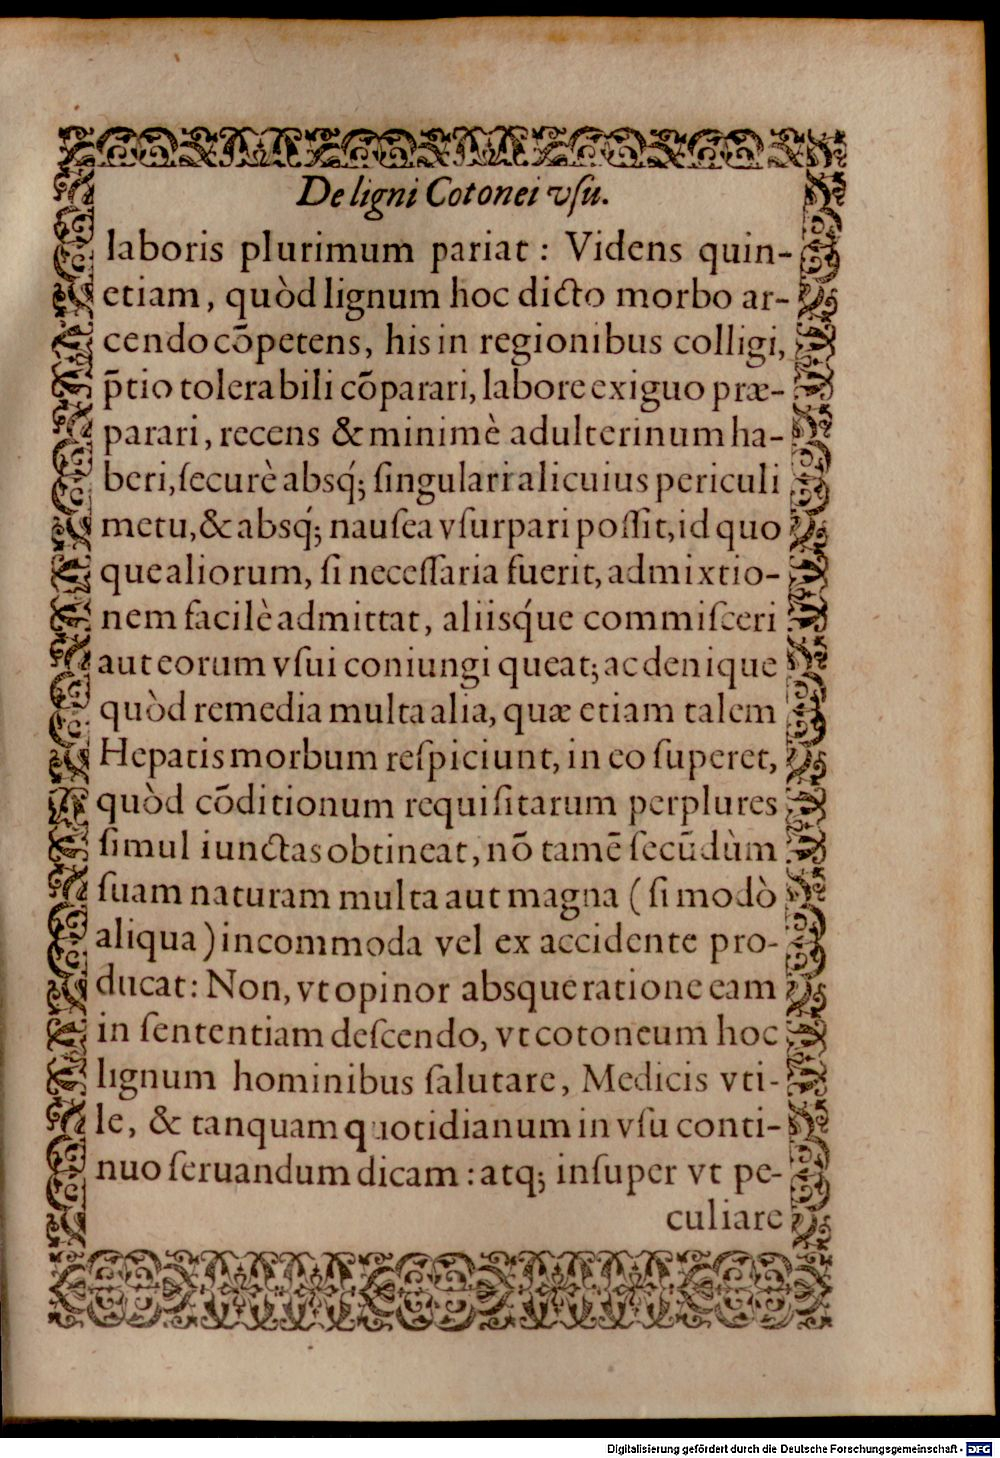 De ligni Cotonei vſu.
laboris plurimum pariat : Videns quin-
etiam, quòd lignum hoc dicto morbo ar-
cendo cõpetens, his in regionibus colligi,
p̃tio tolerabili cõparari, labore exiguo præ-
parari, recens & minimè adulterinum ha-
beri, ſecurè absq́; ſingulari alicuius periculi
metu, & absq́; nauſea vſurpari poſſit, id quo
que aliorum, ſi neceſſaria fuerit, admixtio-
nem facilè admittat, aliisq́ue commiſceri
aut eorum vſui coniungi queat; ac denique
quòd remedia multa alia, quæ etiam talem
Hepatis morbum reſpiciunt, in eo ſuperet,
quòd cõditionum requiſitarum perplures
ſimul iunctas obtineat, nõ tamẽ ſecũdùm
ſuam naturam multa aut magna ( ſi modò
aliqua ) incommoda vel ex accidente pro-
ducat: Non, vt opinor absque ratione eam
in ſententiam deſcendo, vt cotoneum hoc
lignum hominibus ſalutare, Medicis vti-
le, & tanquam quotidianum in vſu conti-
nuo ſeruandum dicam : atq; inſuper vt pe-
culiare
Digitalisierung gefördert durch die Deutsche Forschungsgemeinschaft - DFG